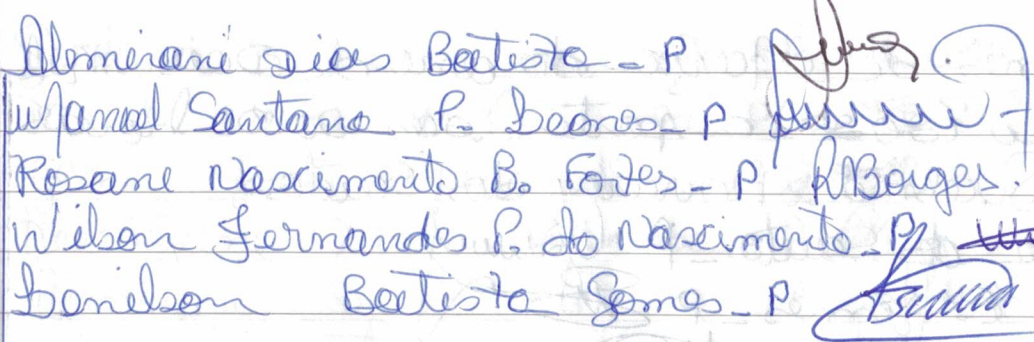 Almirani Dias Batista - P
Manoel Santana P. Soares - P
Rosane Nascimento B. Fortes - P RBorges.
Wilson Fernandes P. do Nascimento - P
Batista Gomes - P